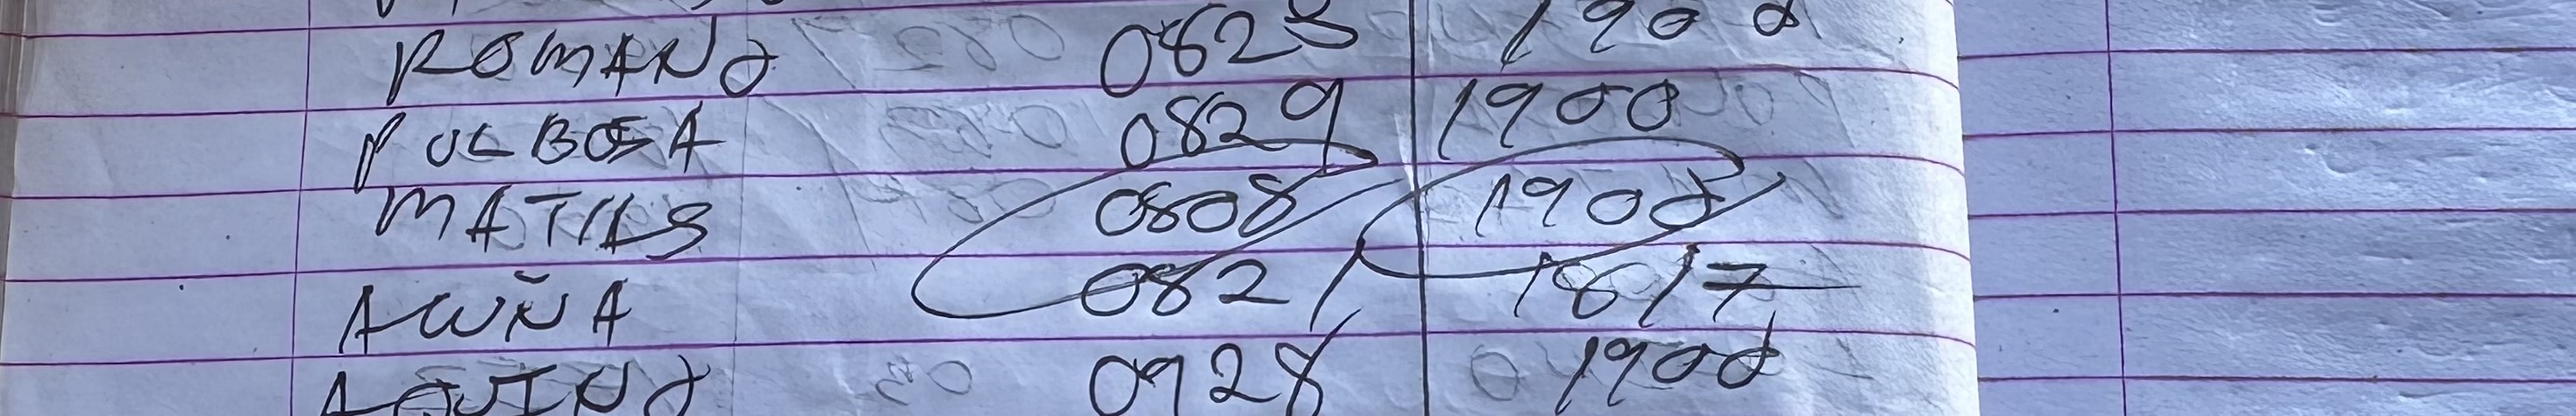 ROMANO 0828 1900
PULBOSA 0829 1900
MATIAS 0808 1900
ACUÑA 0821 1817
AQUINO 0928 1900